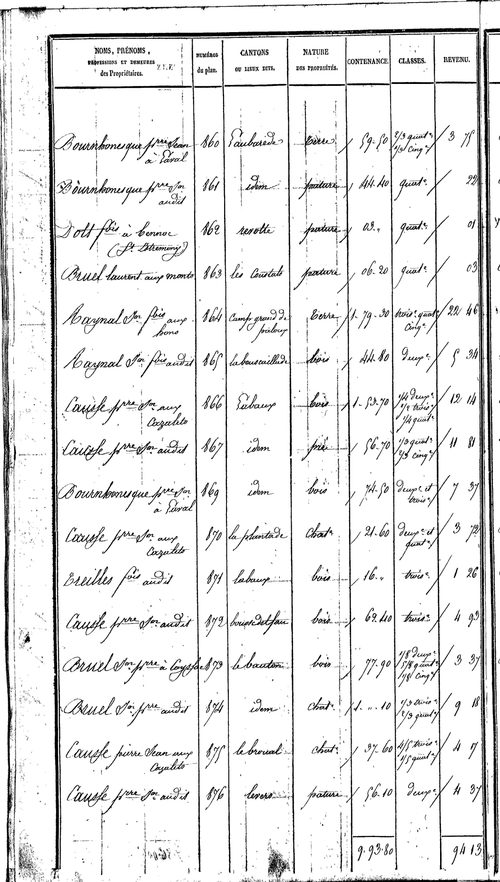 NOMS, PRÉNOMS, PROFESSIONS ET DEMEURES des Propriétaires. | NUMÉROS du plan. | CANTONS OU LIEUX DITS. | NATURE DES PROPRIÉTÉS. | CONTENANCE. | CLASSES. | REVENU.
Bournhonesque pre Jean à Laval | 860 | Laubarede | terre | 59-50 | 2/3 quat. 1/3 cinq. | 3 75
Bournhonesque pre Jn audit | 861 | idem | pature | 44.40 | quat. | 22
Dolt fois à bonnoc | 862 | resolte | pature | 03. " | quat. | 01
Bruel laurent aux monts | 863 | les | pature | 06.20 | quat. | 03
Raynal Jn fois aux | 864 | Camp grand de | terre | 1-79-30 | trois. quat. cinq. | 22 46
Raynal Jn fois audit | 865 | | bois | 44.80 | deux. | 5 34
Causse pre Jn aux Cazalets | 866 | Labaux | bois | 1-53-70 | 1/4 deux. 1/2 trois. 1/4 quat. | 12 14
Causse pre Jn audit | 867 | idem | | 56.70 | quat. cinq. | 11 81
Bournhonesque pre Jn à Laval | 869 | idem | bois | 74-50 | deux. et trois. | 7 37
Causse pre Jn aux Cazalets | 870 | la plantade | chat. | 21-60 | deux. et quat. | 3 72
Treilles fois audit | 871 | labaux | bois | 16. " | trois. | 1 26
Causse pre Jn audit | 872 | | bois | 62.40 | trois. | 4 93
Bruel Jn pre à | 873 | le bautou | bois | 77-90 | 1/8 deux. 5/8 quat. cinq. | 3 37
Bruel Jn pre audit | 874 | idem | chat. | 1. ". 10 | 1/3 trois. 2/3 quat. | 9 18
Causse pierre Jean aux Cazalets | 875 | le broual | chat. | 37.60 | 4/5 trois. 1/5 quat. | 4 17
Causse pre Jn audit | 876 | levers | pature | 56.10 | deux. | 4 37
9.93.80 | 94 13